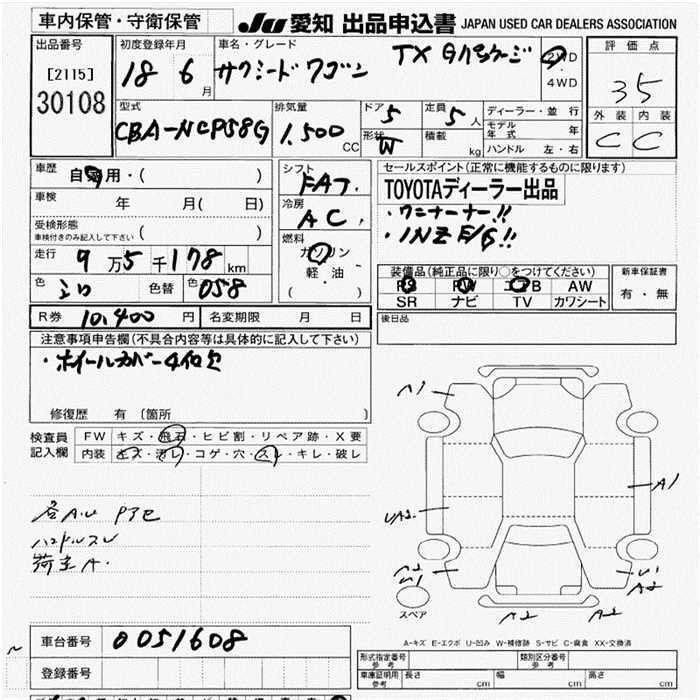 車内保管・守衛保管
JU 愛知 出品申込書 JAPAN USED CAR DEALERS ASSOCIATION
出品番号
[2115]
30108
初度登録年月
18 6 月
車名・グレード
サクシードワゴン TX Gパッケージ
2WD
4WD
評価点
35
外装 内装
C C
型式
CBA-NCP58G
排気量
1.500 CC
ドア 5
形状 W
定員 5 人
積載 kg
ディーラー・並行
モデル年式 年
ハンドル 左・右
車歴
自家用・( )
車検
年 月( 日)
受検形態
車検付きのみ記入して下さい ( )
走行 9万5千178km
色 シロ 色替 色 058
シフト
FAT
冷房
AC
燃料
ガソリン
軽・油
( )
セールスポイント(正常に機能するものに限ります)
TOYOTAディーラー出品
・ワンオーナー!!
・1NZ E/G!!
装備品(純正品に限り○をつけてください)
PS PW エアB AW
SR ナビ TV カワシート
新車保証書
有・無
R券 10,400 円 名変期限 月 日
後日品
注意事項申告欄(不具合内容等は具体的に記入して下さい)
・ホイールカバー4枚欠
修復歴 有 〔箇所 〕
検査員記入欄
FW キズ・飛石・ヒビ割・リペア跡・X要
内装 キズ・汚レ・コゲ・穴・スレ・キレ・破レ
各A.U
ハンドルスレ
A1
A1
UA2
A2
U1
U1
A2
A2
A2
スペア
A-キズ E-エクボ U-凹み W-補修跡 S-サビ C-腐食 XX-交換済
車台番号 0051608
登録番号
型式指定番号 参考
類別区分番号 参考
車庫証明用 参考 長さ cm 幅 cm 高さ cm